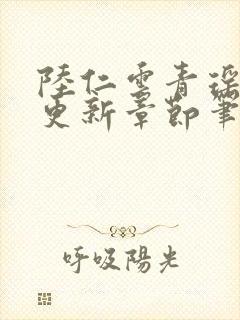 陸仁雲青瑶
更新章節筆
呼吸陽光